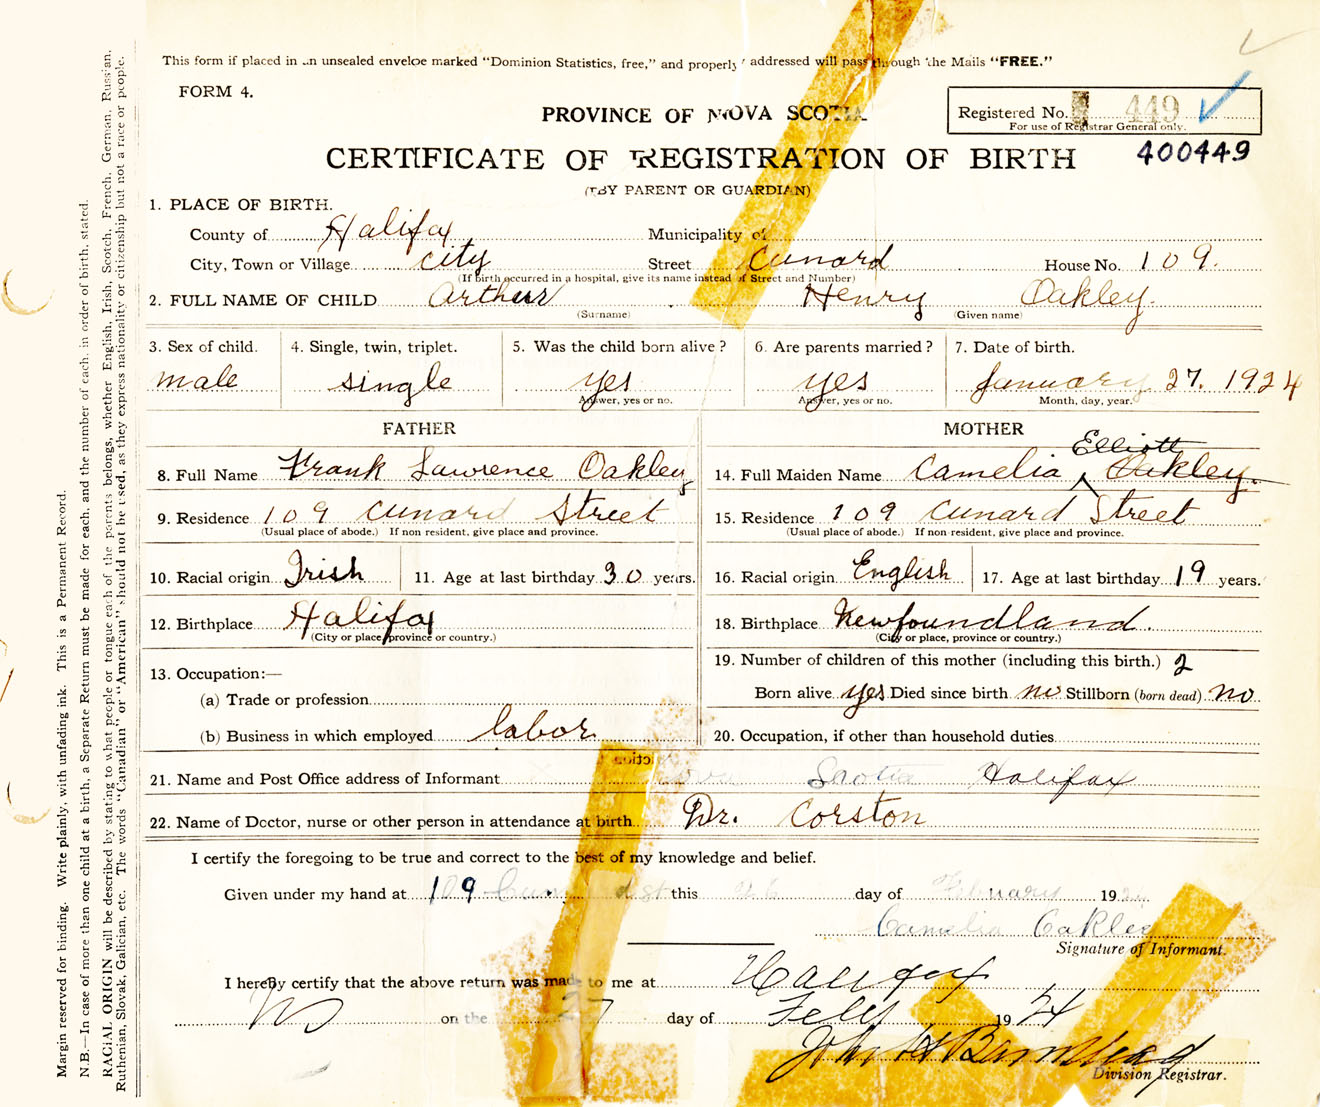 This form if placed in an unsealed enveloe marked "Dominion Statistics, free," and properly addressed will pass through the Mails "FREE."
FORM 4.
Registered No. 449
For use of Registrar General only.
PROVINCE OF NOVA SCOTIA
400449
CERTIFICATE OF REGISTRATION OF BIRTH
(BY PARENT OR GUARDIAN)
1. PLACE OF BIRTH.
County of Halifax Municipality of
City, Town or Village city Street Cunard House No. 109.
(If birth occurred in a hospital, give its name instead of Street and Number)
2. FULL NAME OF CHILD Arthur Henry Oakley.
(Surname) (Given name)
3. Sex of child. 4. Single, twin, triplet. 5. Was the child born alive? 6. Are parents married? 7. Date of birth.
male single yes yes January 27. 1924
Answer, yes or no. Answer, yes or no. Month, day, year.
FATHER MOTHER
8. Full Name Frank Lawrence Oakley 14. Full Maiden Name Camelia Elliott Oakley.
9. Residence 109 Cunard Street 15. Residence 109 Cunard Street
(Usual place of abode.) If non resident, give place and province. (Usual place of abode.) If non-resident, give place and province.
10. Racial origin Irish 11. Age at last birthday 30 years. 16. Racial origin English 17. Age at last birthday 19 years.
12. Birthplace Halifax 18. Birthplace Newfoundland.
(City or place, province or country.) (City or place, province or country.)
13. Occupation:— 19. Number of children of this mother (including this birth.) 2
(a) Trade or profession Born alive yes Died since birth no Stillborn (born dead) no
(b) Business in which employed labor 20. Occupation, if other than household duties
21. Name and Post Office address of Informant Nova Scotia Halifax
22. Name of Doctor, nurse or other person in attendance at birth Dr. Corston
I certify the foregoing to be true and correct to the best of my knowledge and belief.
Given under my hand at 109 Cunard st this 26 day of February 1924
Camelia Oakley
Signature of Informant.
I hereby certify that the above return was made to me at Halifax
on the 27 day of Feby 1924
John H Barnstead
Division Registrar.
Margin reserved for binding. Write plainly, with unfading ink. This is a Permanent Record.
N.B.—In case of more than one child at a birth, a Separate Return must be made for each, and the number of each, in order of birth, stated.
RACIAL ORIGIN will be described by stating to what people or tongue each of the parents belongs, whether English, Irish, Scotch, French, German, Russian,
Ruthenian, Slovak, Galician, etc. The words "Canadian" or "American" should not be used, as they express nationality or citizenship but not a race or people.